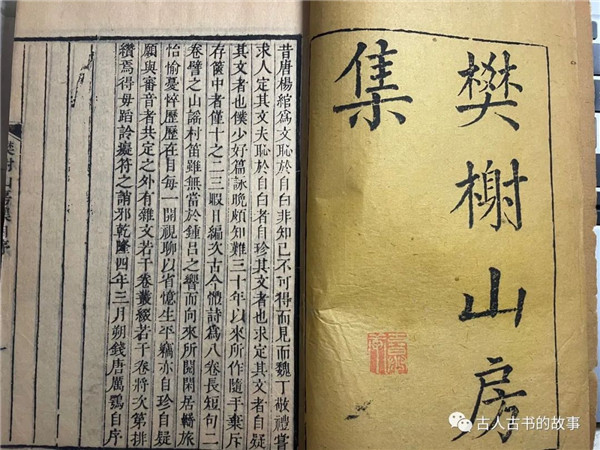 樊榭山房
集
昔唐楊綰爲文恥於自白非知己不可得而見而魏丁敬禮嘗
求人定其文夫恥於自白者自珍其文者也求定其文者自疑
其文者也僕少好篇詠晚頗知難三十年以來所作隨手棄斥
存篋中者僅十之二三暇日編次古今體詩爲八卷長短句二
卷譬之山謡村笛雖無當於鍾呂之響而向來所閱閒居羇旅
怡愉憂悴歷歷在目每一開視聊以省憶生平竊亦自珍自疑
願與審音者共定之外有雜文若干卷叢綴若干卷將次第排
纘焉得毋貽詅癡符之誚邪乾隆四年三月朔錢唐厲鶚自序
樊榭山房集自序
古人古书的故事